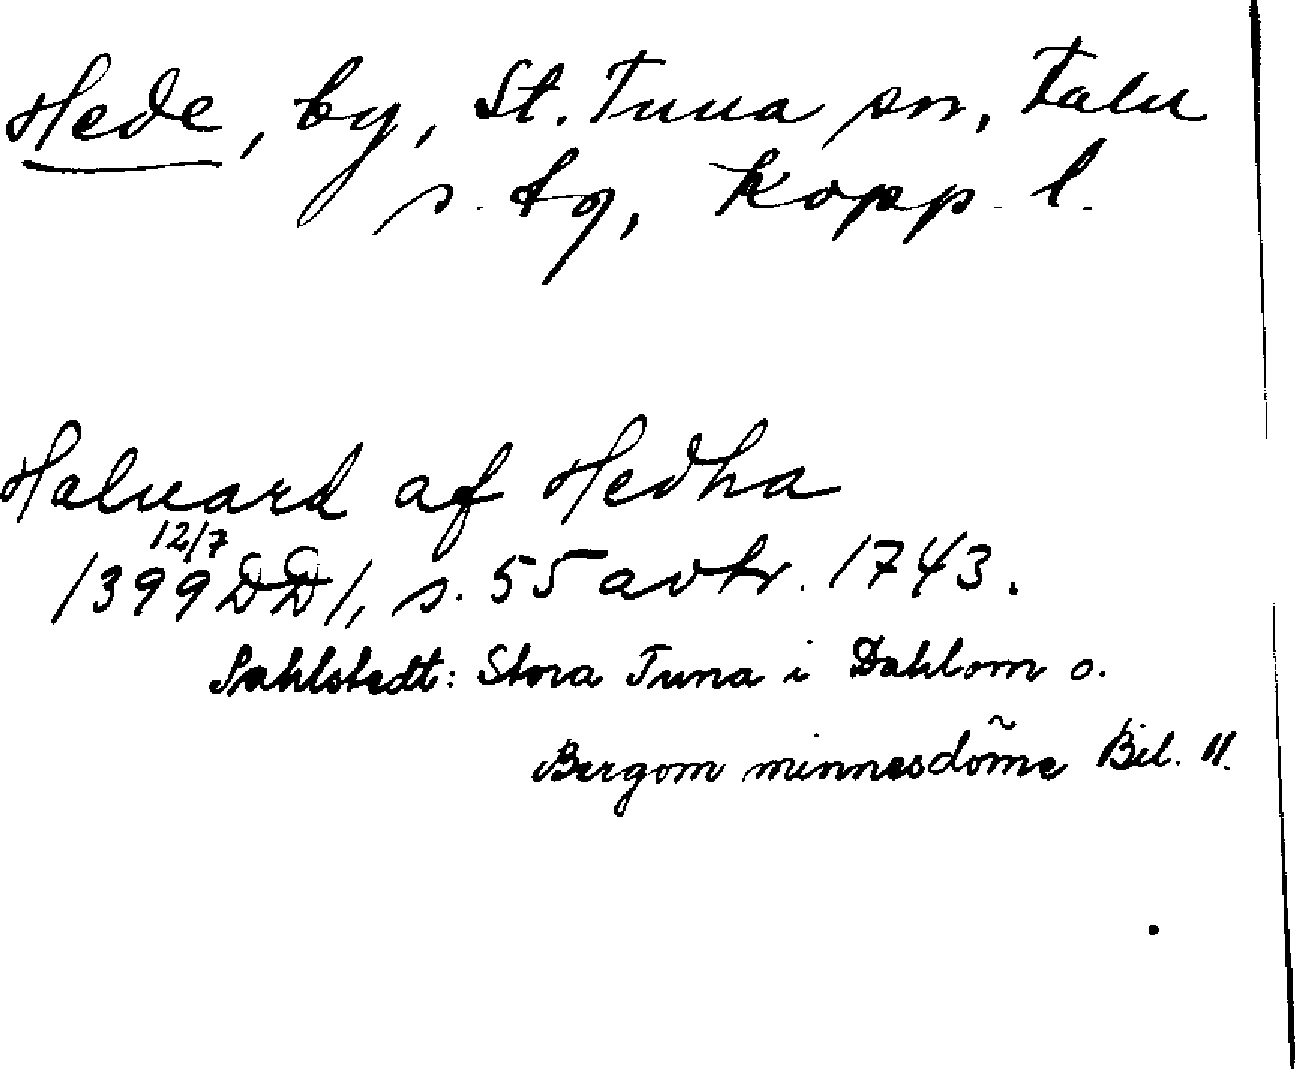 Hede, by, St. Tuna sn, Falu
s. tg, Kopp. l.
Halvard af Hedha
12/7
1399 DD 1, s. 55 avtr. 1743.
Sahlstedt: Stora Tuna i Dahlom o.
Bergom minnesdöme Bil. 11.